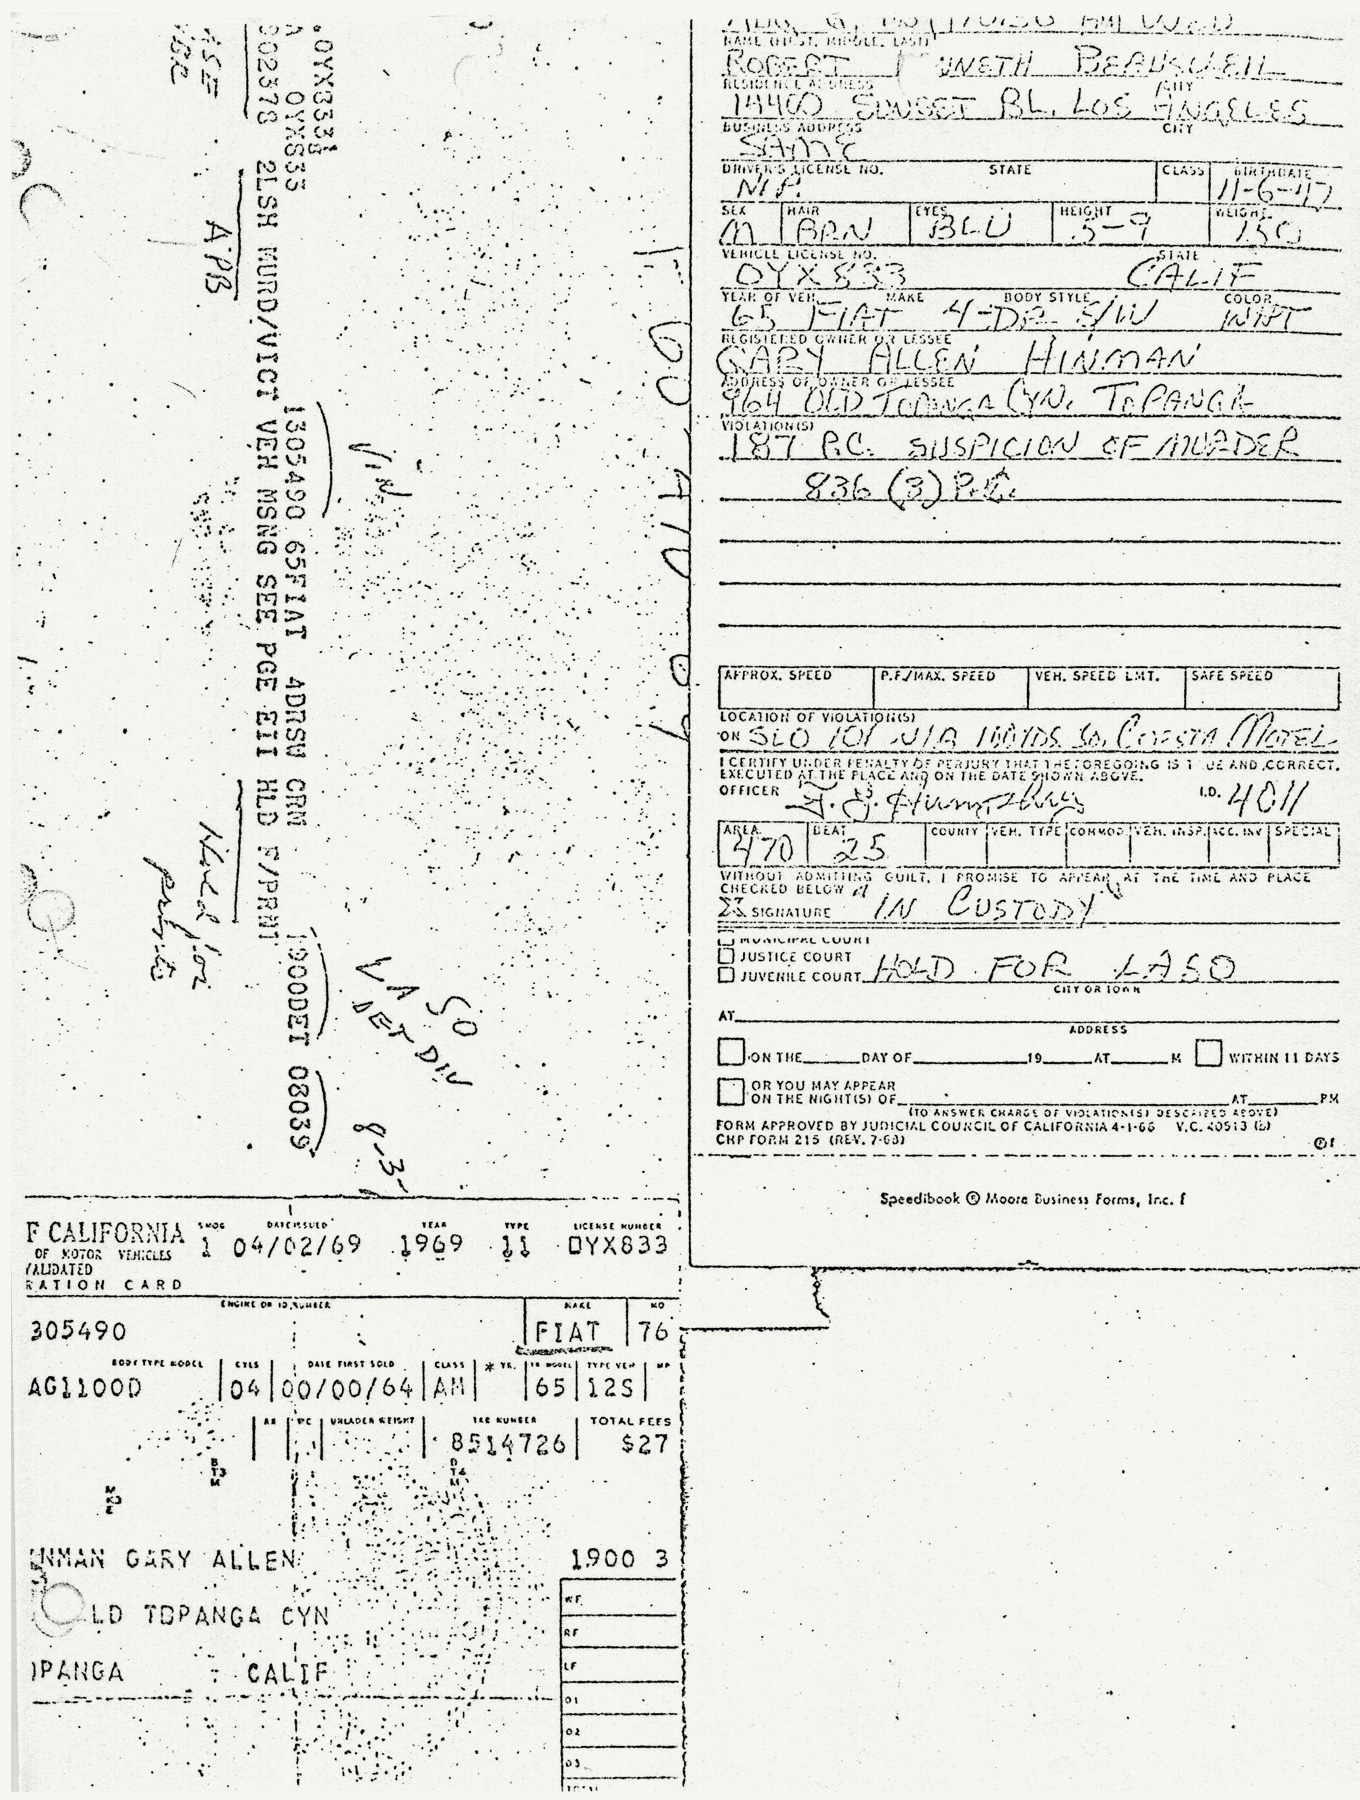 NAME (FIRST, MIDDLE, LAST)
ROBERT NNETH BEAUSLEIL
RESIDENCE ADDRESS CITY
14400 SUNSET BL. LOS ANGELES
BUSINESS ADDRESS CITY
SAME
DRIVER'S LICENSE NO. STATE CLASS BIRTHDATE
11-6-47
SEX HAIR EYES HEIGHT WEIGHT
M BRN BLU 5-9 150
VEHICLE LICENSE NO. STATE
OYX833 CALIF
YEAR OF VEH. MAKE BODY STYLE COLOR
65 FIAT 4-DR S/W WHT
REGISTERED OWNER OR LESSEE
GARY ALLEN HINMAN
ADDRESS OF OWNER OR LESSEE
964 OLD TOPANGA CYN. TOPANGA
VIOLATION(S)
187 P.C. SUSPICION OF MURDER
836 (3) P.C.
APPROX. SPEED P.F./MAX. SPEED VEH. SPEED LMT. SAFE SPEED
LOCATION OF VIOLATION(S)
ON SLO 101 N/B 100 YDS SO. CUESTA MOTEL
I CERTIFY UNDER PENALTY OF PERJURY THAT THE FOREGOING IS T UE AND CORRECT.
EXECUTED AT THE PLACE AND ON THE DATE SHOWN ABOVE.
OFFICER F. J. Humphrey I.D. 4011
AREA BEAT COUNTY VEH. TYPE COMMOD. VEH. INSP. ACC. INV SPECIAL
470 25
WITHOUT ADMITTING GUILT, I PROMISE TO APPEAR AT THE TIME AND PLACE
CHECKED BELOW
X SIGNATURE IN CUSTODY
MUNICIPAL COURT
JUSTICE COURT
JUVENILE COURT HOLD FOR LASO
CITY OR TOWN
AT
ADDRESS
ON THE DAY OF 19 AT M WITHIN 11 DAYS
OR YOU MAY APPEAR
ON THE NIGHT(S) OF AT PM
(TO ANSWER CHARGE OF VIOLATION(S) DESCRIBED ABOVE)
FORM APPROVED BY JUDICIAL COUNCIL OF CALIFORNIA 4-1-66 V.C. 40513 (b)
CHP FORM 215 (REV. 7-68)
Speedibook © Moore Business Forms, Inc. f
.OYX833
A OYX833 1305490 65FIAT ADRSW CRN 1900DET 08039
902378 2LSH MURD/VICT VEH MSNG SEE PGE EII HLD F/PRNT
APB
VIN
Hold for
prints
LASO
DET DIV
8-3-
F CALIFORNIA
OF MOTOR VEHICLES
VALIDATED
RATION CARD
SMOG DATE ISSUED YEAR TYPE LICENSE NUMBER
1 04/02/69 1969 11 OYX833
ENGINE OR ID NUMBER MAKE MO
305490 FIAT 76
BODY TYPE MODEL CYLS DATE FIRST SOLD CLASS * YR. YR MODEL TYPE VEH MP
AG1100D 04 00/00/64 AM 65 12S
AX WC UNLADEN WEIGHT TAB NUMBER TOTAL FEES
8514726 $27
INMAN GARY ALLEN 1900 3
LD TOPANGA CYN
OPANGA CALIF
WF
RF
LF
01
02
03
TOTAL